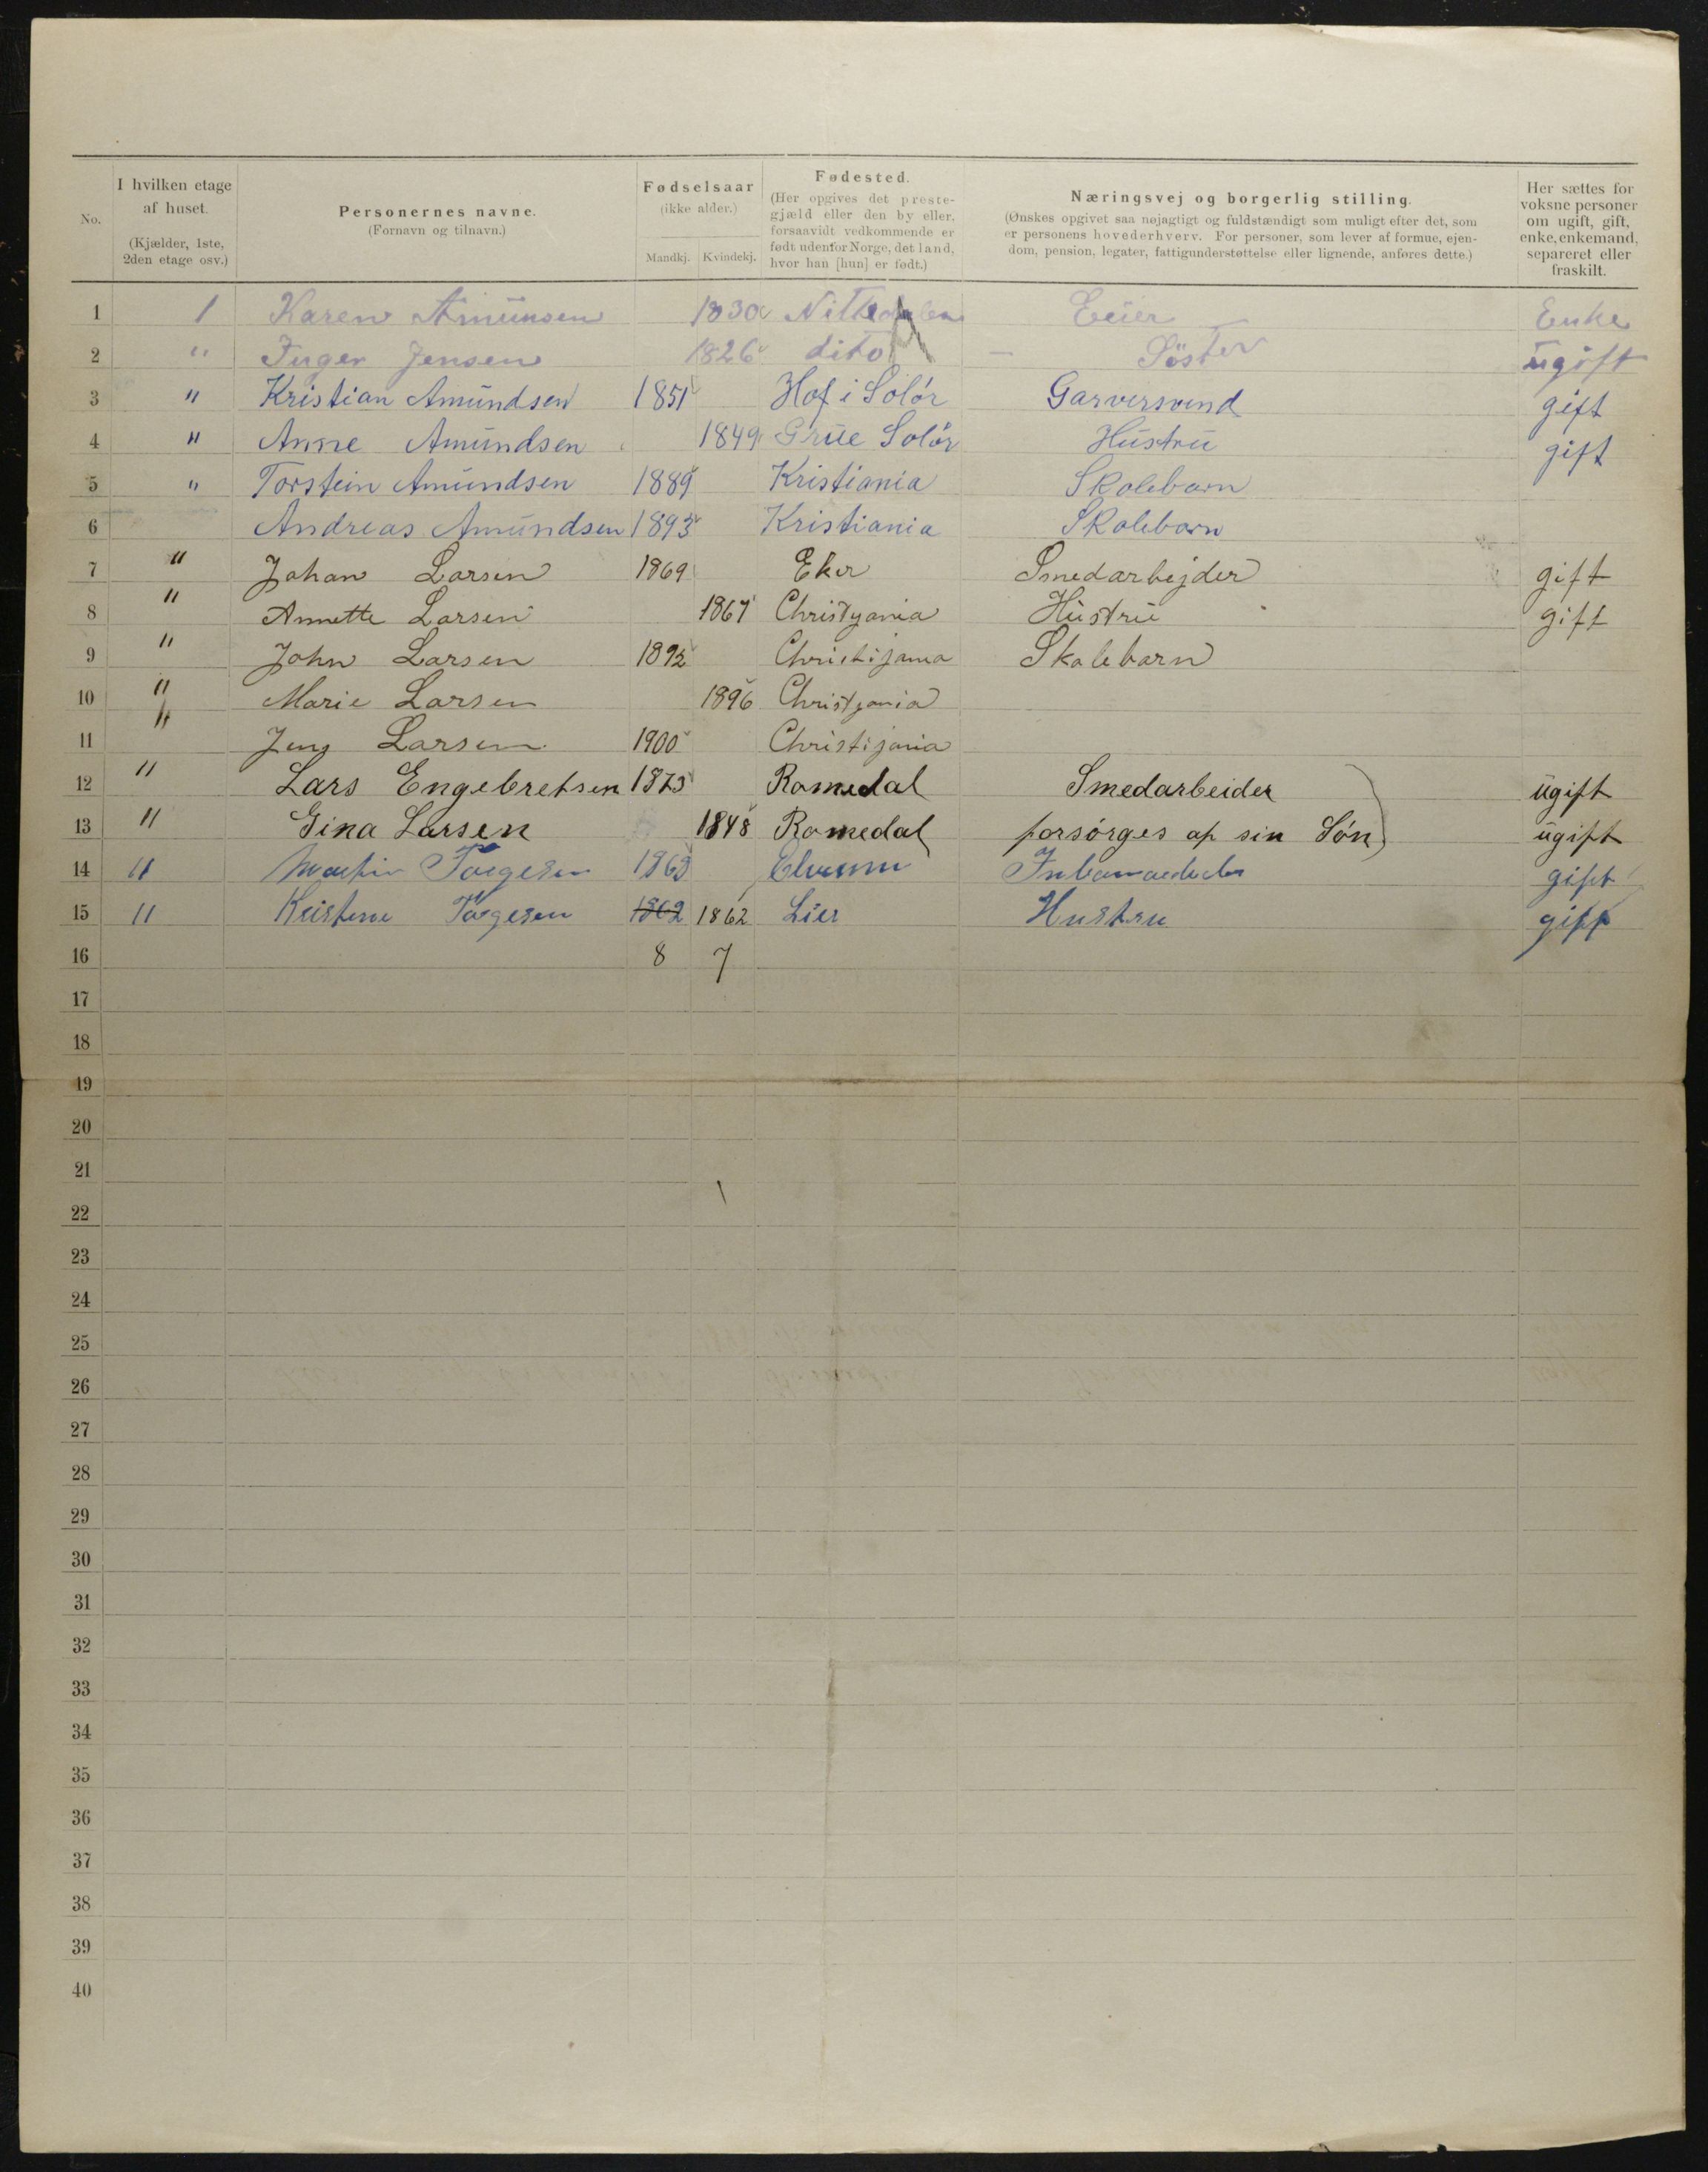 No. | I hvilken etage af huset. (Kjælder, 1ste, 2den etage osv.) | Personernes navne. (Fornavn og tilnavn.) | Fødselsaar (ikke alder.) Mandkj. | Kvindekj. | Fødested. (Her opgives det prestegjæld eller den by eller, forsaavidt vedkommende er født udenfor Norge, det land, hvor han [hun] er født.) | Næringsvej og borgerlig stilling. (Ønskes opgivet saa nøjagtigt og fuldstændigt som muligt efter det, som er personens hovederhverv. For personer, som lever af formue, ejendom, pension, legater, fattigunderstøttelse eller lignende, anføres dette.) | Her sættes for voksne personer om ugift, gift, enke, enkemand, separeret eller fraskilt.
1 1 Karen Amunsen 1830 Nittedalen Eeier Enke
2 " Inger Jensen 1826 dito – Söster ugift
3 " Kristian Amundsen 1851 Hof i Solör Garversvend gift
4 " Anne Amundsen 1849 Grue Solör Hustru gift
5 " Torstein Amundsen 1889 Kristiania Skolebarn
6 Andreas Amundsen 1893 Kristiania Skolebarn
7 " Johan Larsen 1869 Eker Smedarbejder gift
8 " Annette Larsen 1867 Christyania Hustru gift
9 " John Larsen 1892 Christijania Skolebarn
10 " Marie Larsen 1896 Christyania
11 " Jens Larsen 1900 Christijania
12 " Lars Engebretsen 1873 Romedal Smedarbeider ugift
13 " Gina Larsen 1848 Romedal forsörges af sin Sön ugift
14 " Martin Torgersen 1863 Elverum gift
15 " Kristine Torgesen 1862 1862 Lier Hustru gift
16 8 7
17
18
19
20
21
22
23
24
25
26
27
28
29
30
31
32
33
34
35
36
37
38
39
40